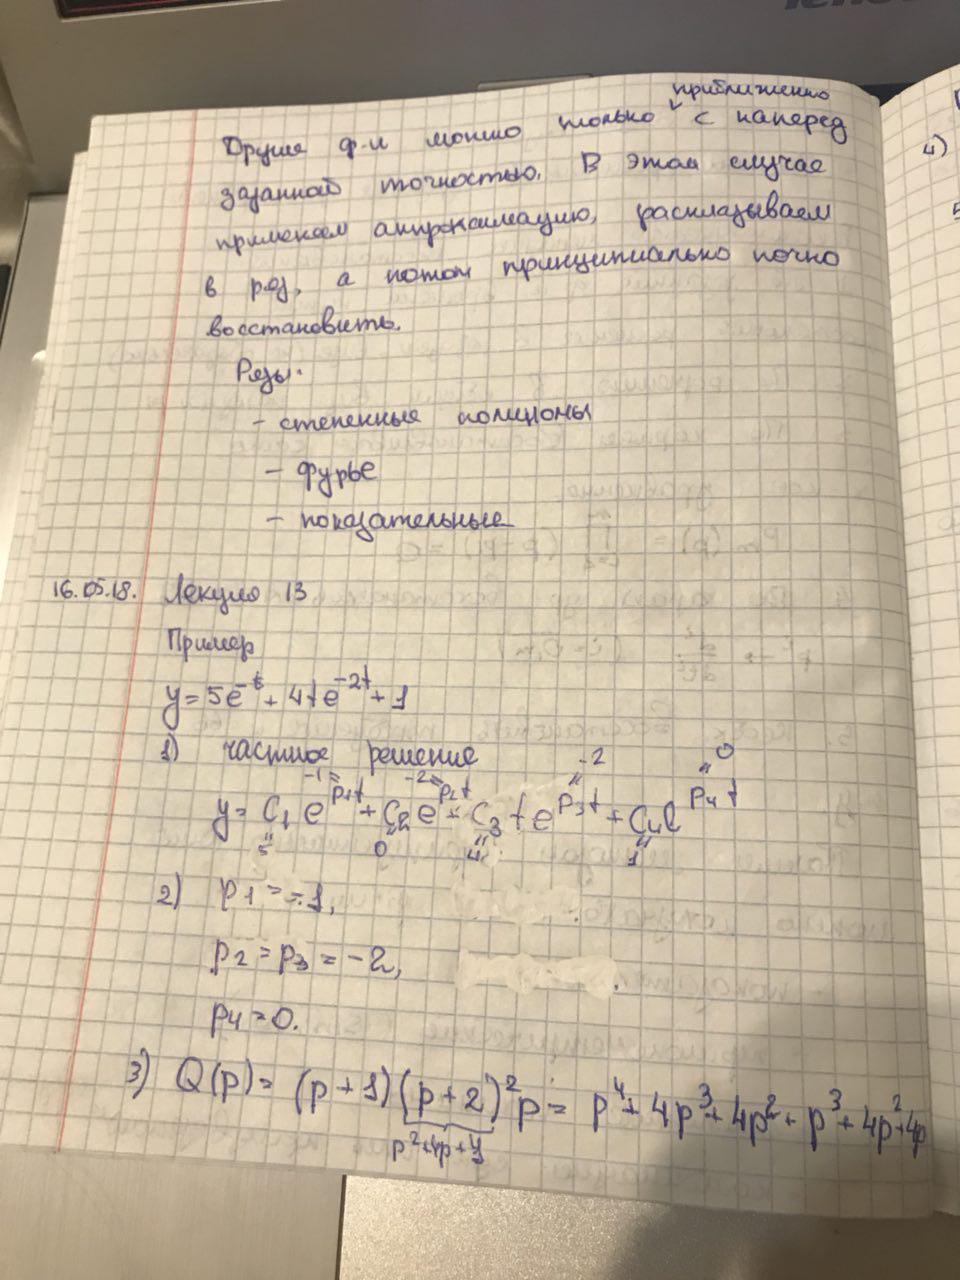 приближенно
Другие ф-и можно только с наперед
заданной точностью. В этом случае
применяем аппроксимацию, раскладываем
в ряд, а потом принципиально точно
восстановить.
Ряды:
- степенные полиномы
- Фурье
- показательные
16.05.18. Лекция 13
Пример
y = 5e^{-t} + 4te^{-2t} + 1
1) частное решение
-1 = -2 = -2 0
y = C1 e^{p1t} + C2 e^{p2t} + C3 t e^{p3t} + C4 e^{p4t}
5 0 4 1
2) p1 = -1,
p2 = p3 = -2,
p4 = 0.
3) Q(p) = (p+1)(p+2)^2 p = p^4 + 4p^3 + 4p^2 + p^3 + 4p^2 + 4p
p^2+4p+4
4)
5